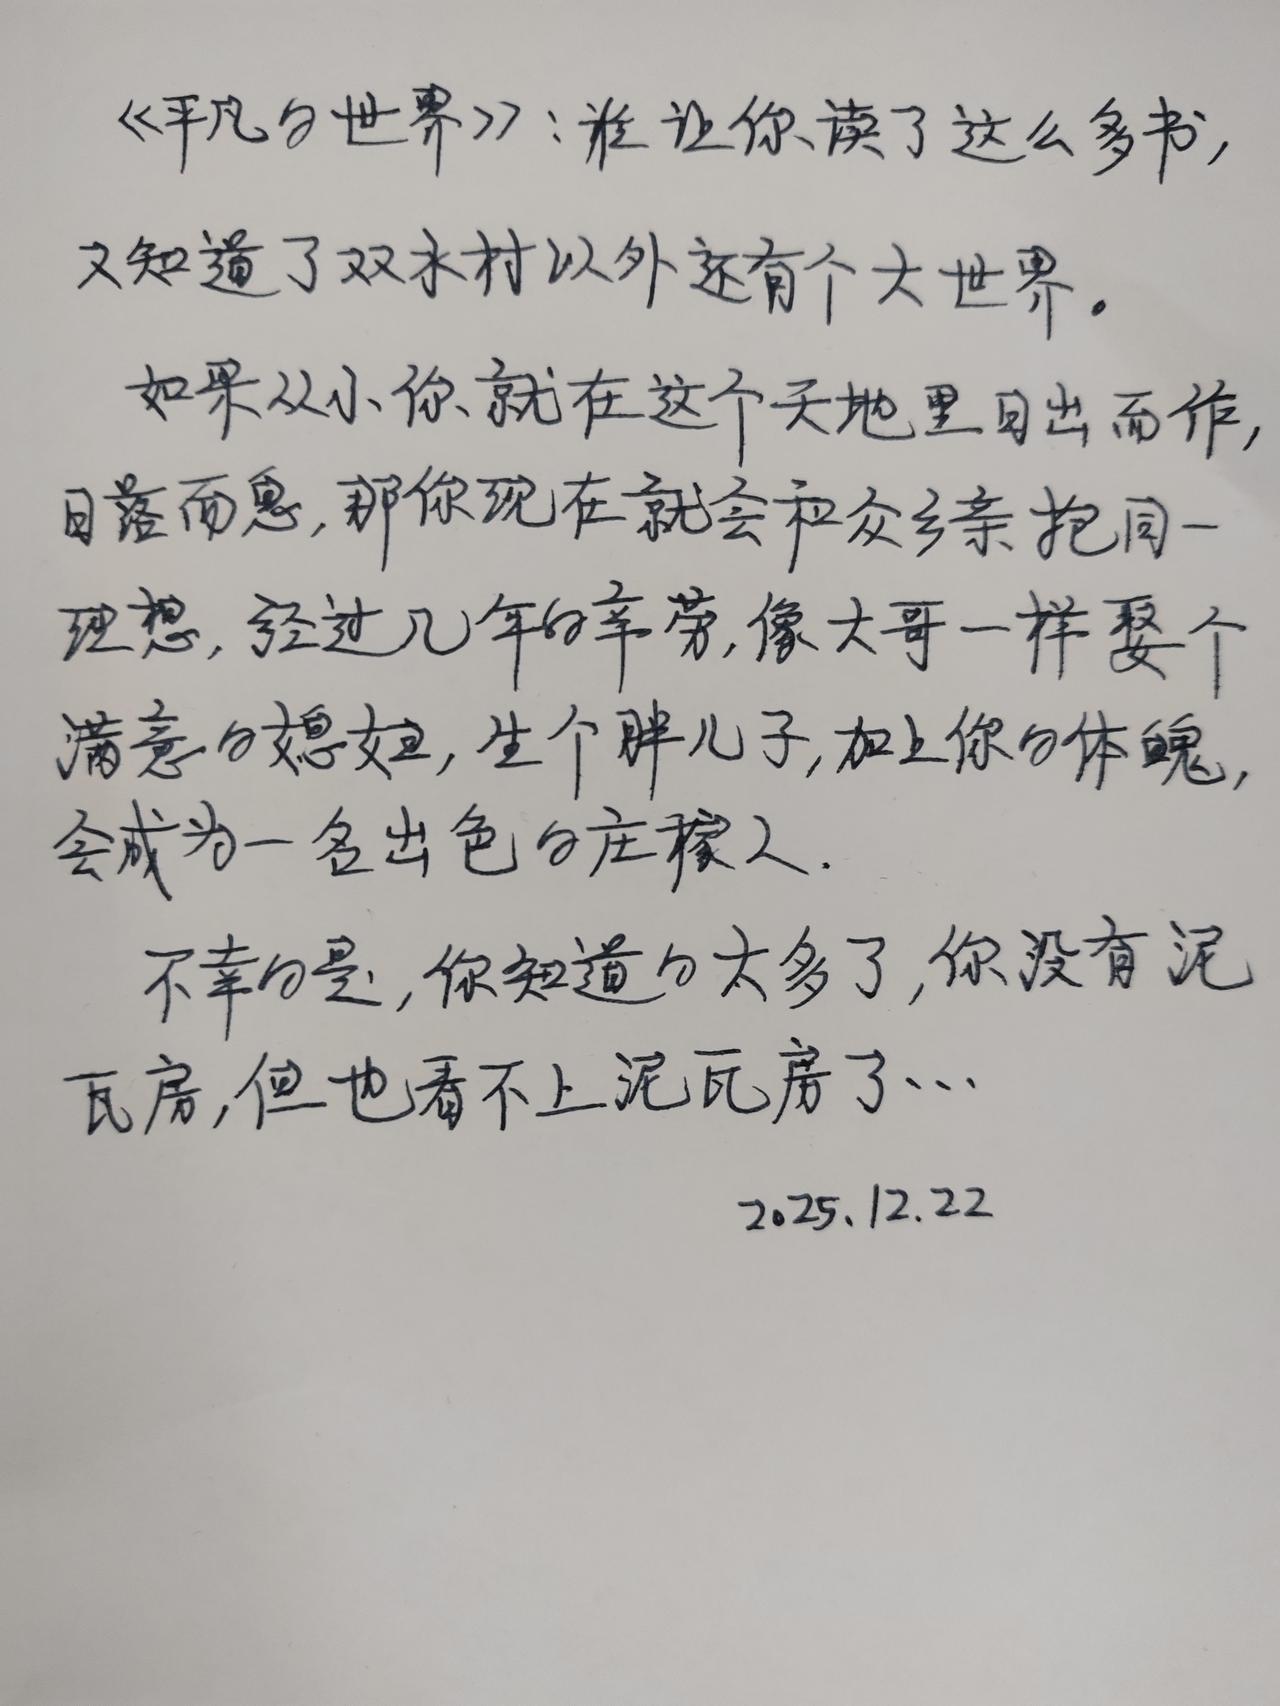 《平凡的世界》：谁让你读了这么多书，
又知道了双水村以外还有个大世界。
如果从小你就在这个天地里日出而作，
日落而息，那你现在就会和众乡亲抱同一
理想，经过几年的辛劳，像大哥一样娶个
满意的媳妇，生个胖儿子，加上你的体魄，
会成为一名出色的庄稼人.
不幸的是，你知道的太多了，你没有泥
瓦房，但也看不上泥瓦房了…
2025.12.22